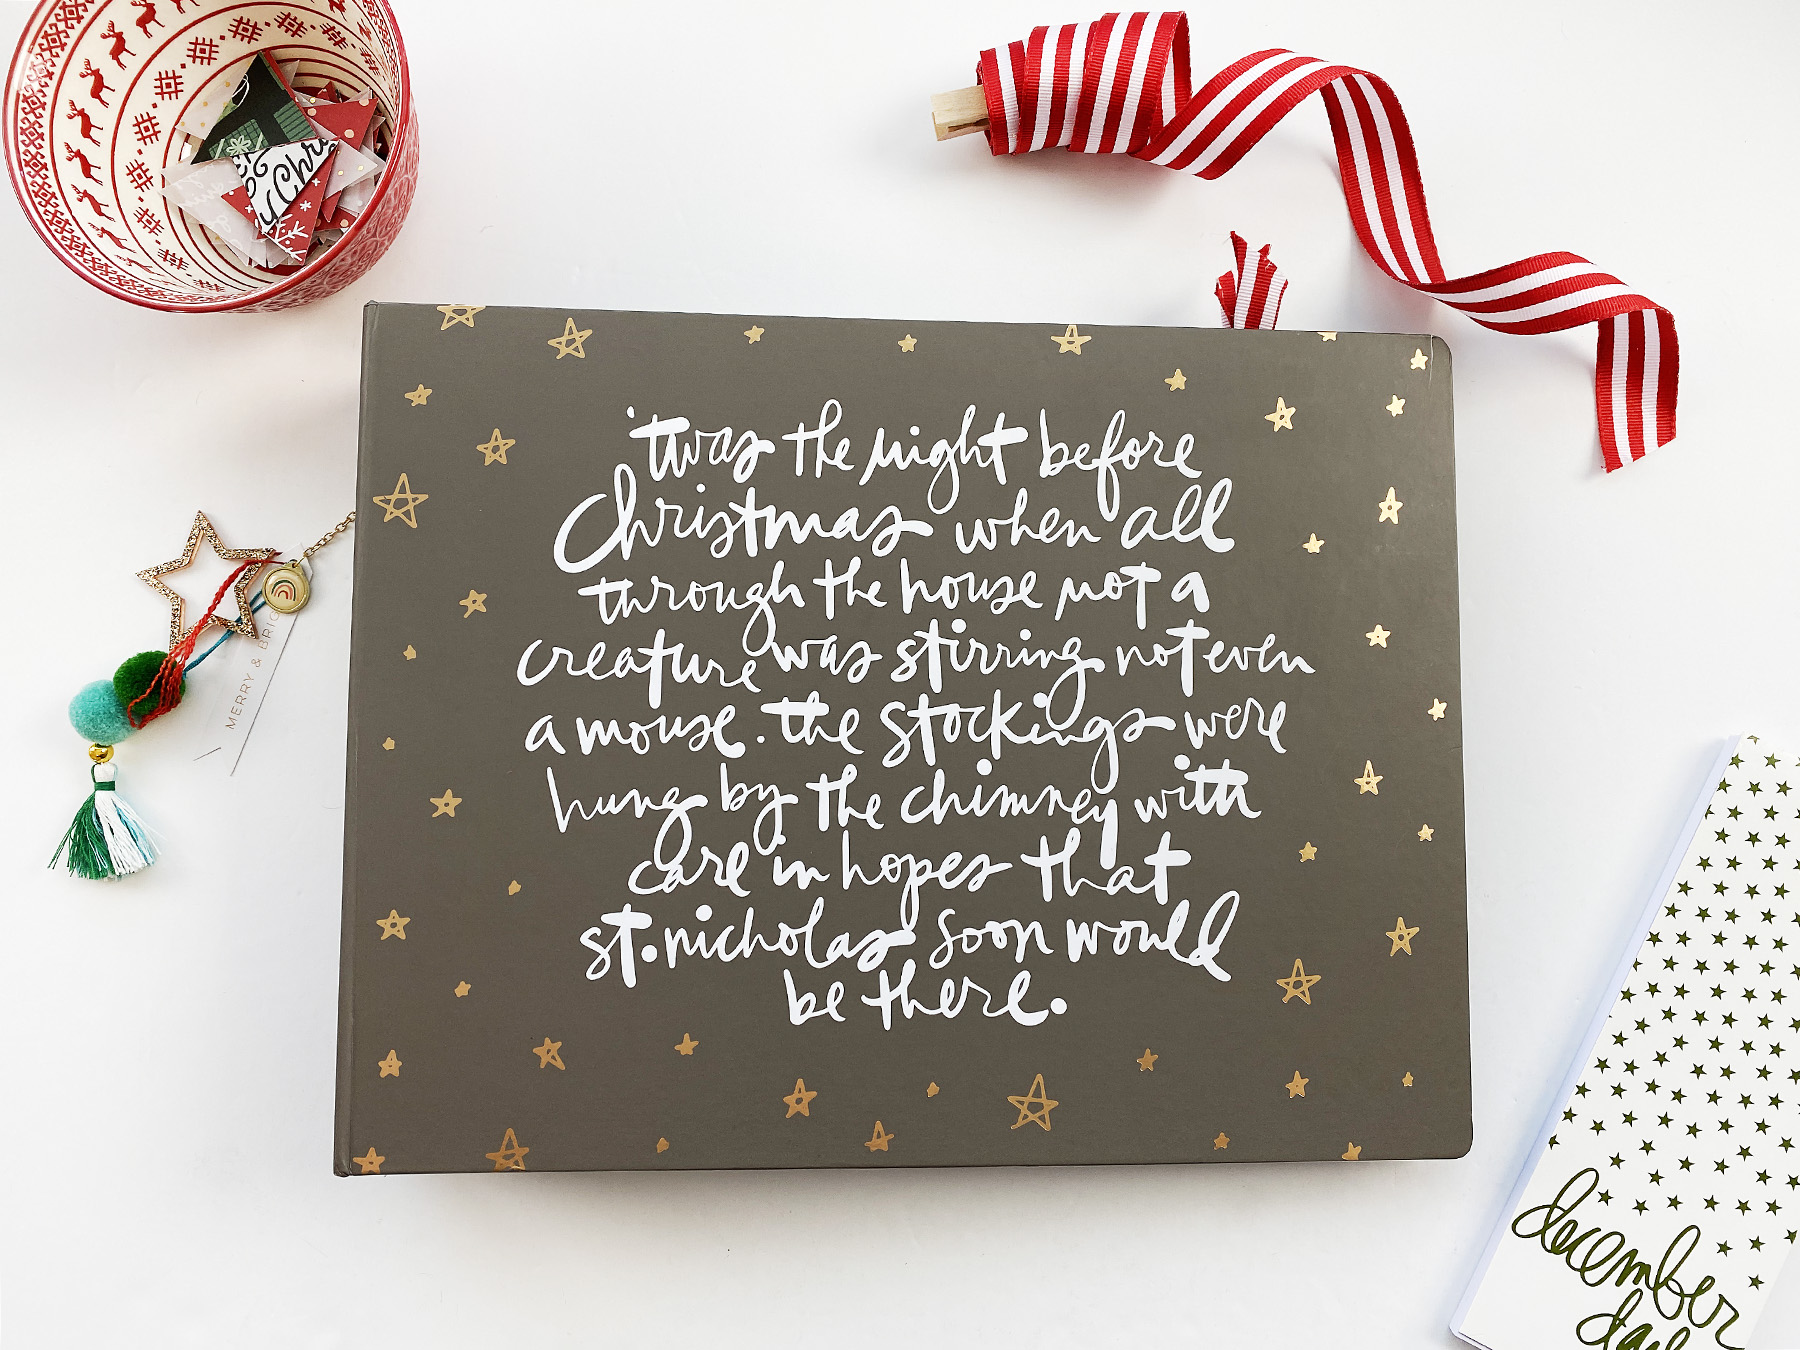 'twas the night before
Christmas when all
through the house not a
creature was stirring not even
a mouse. the stockings were
hung by the chimney with
care in hopes that
st. nicholas soon would
be there.
MERRY &
december